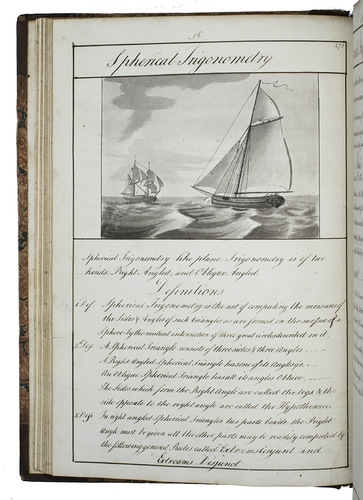 16
Spherical Trigonometry
Spherical Trigonometry like plane Trigonometry is of two
kinds Right Angled, and Oblique Angled.
Definitions
1 Def. Spherical Trigonometry is the art of computing the measures of
the Sides & Angles of such triangles as are formed on the surface of a
Sphere by the mutual intersection of three great circles described on it.
2 Def A Spherical Triangle consists of three sides & three Angles
A Right Angled Spherical Triangle has one of its Angles 90°
An Oblique Spherical Triangle has all its angles Oblique
The Sides which form the Right Angle are called the legs & the
side opposite to the right angle are called the Hypothenuse
3 Def In right angled Spherical Triangles two parts beside the Right
Angle must be given all the other parts may be readily computed by
the following general Rules called Extrems Conjunct and
Extreams Disjunct